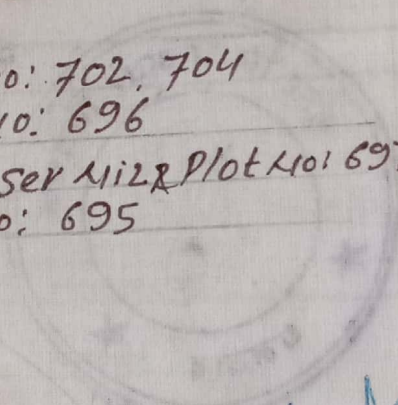 o: 702, 704
10: 696
ser Niz & Plot No: 697
o: 695